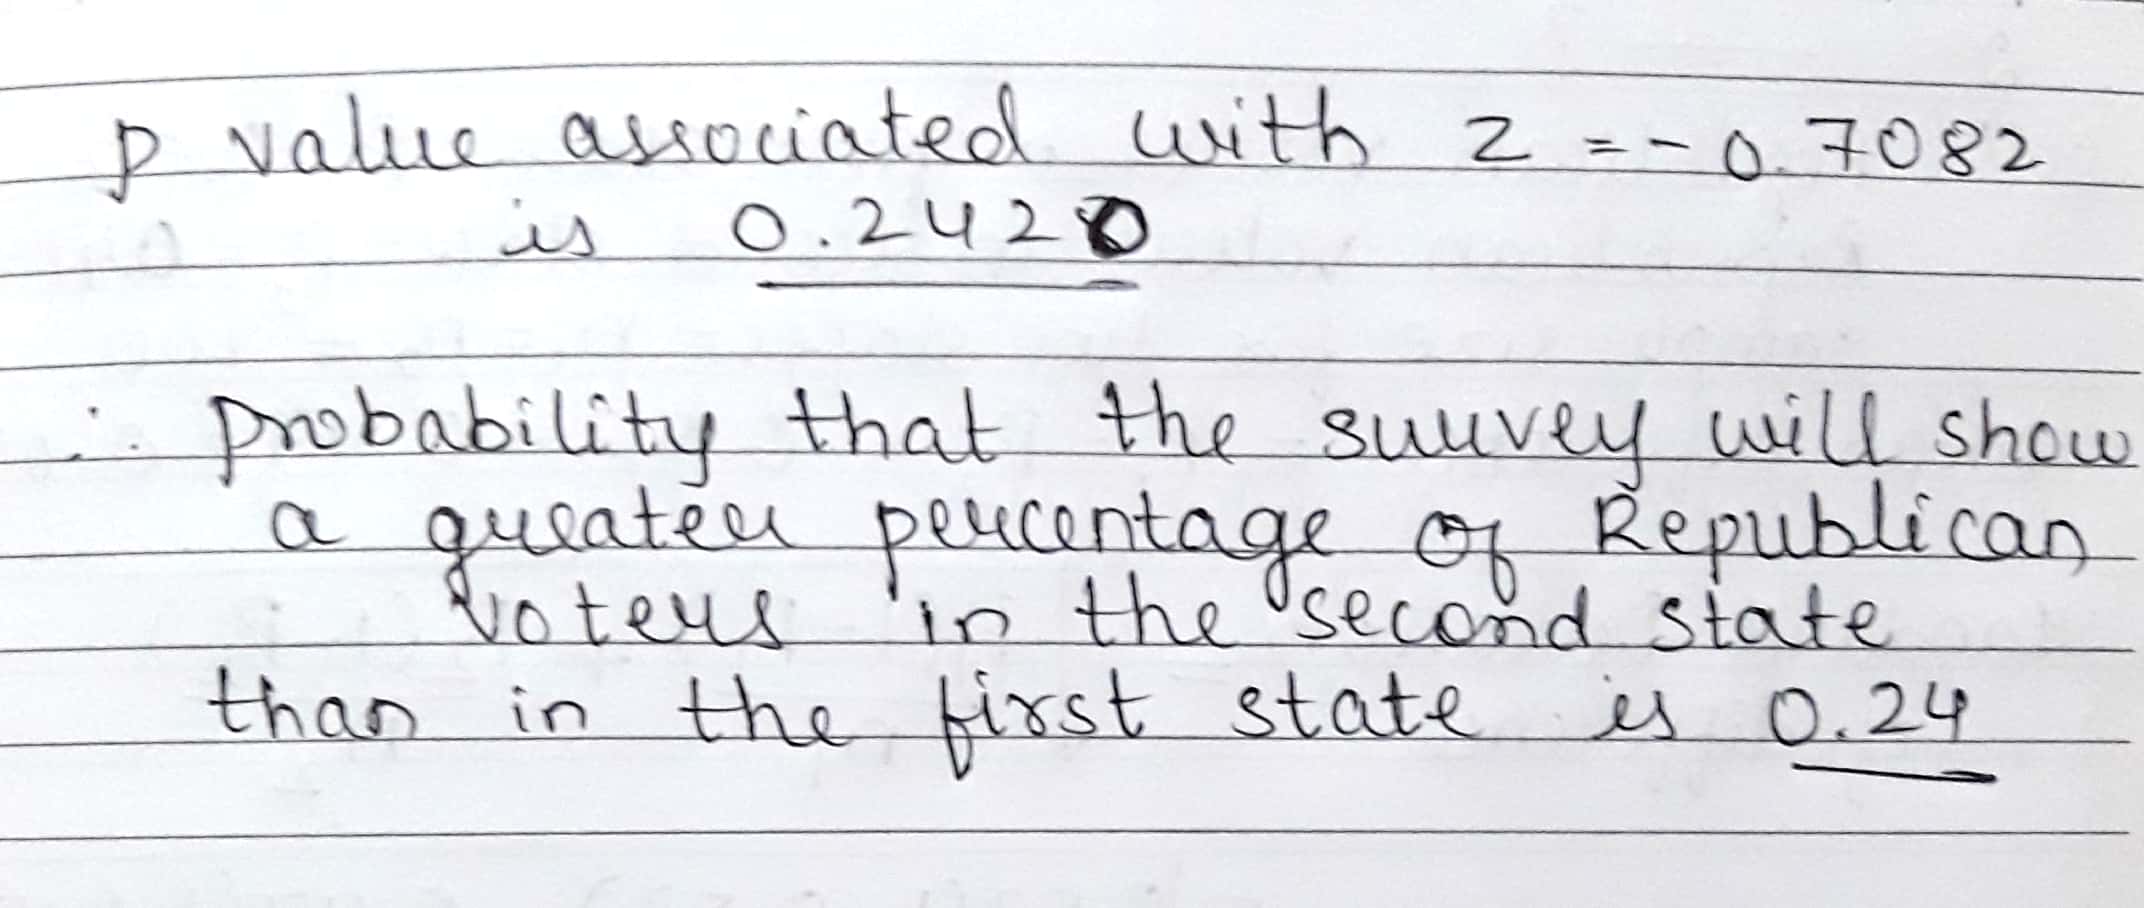 p value associated with z = -0.7082
is 0.2420
∴ probability that the survey will show
a greater percentage of Republican
voters in the second state
than in the first state is 0.24